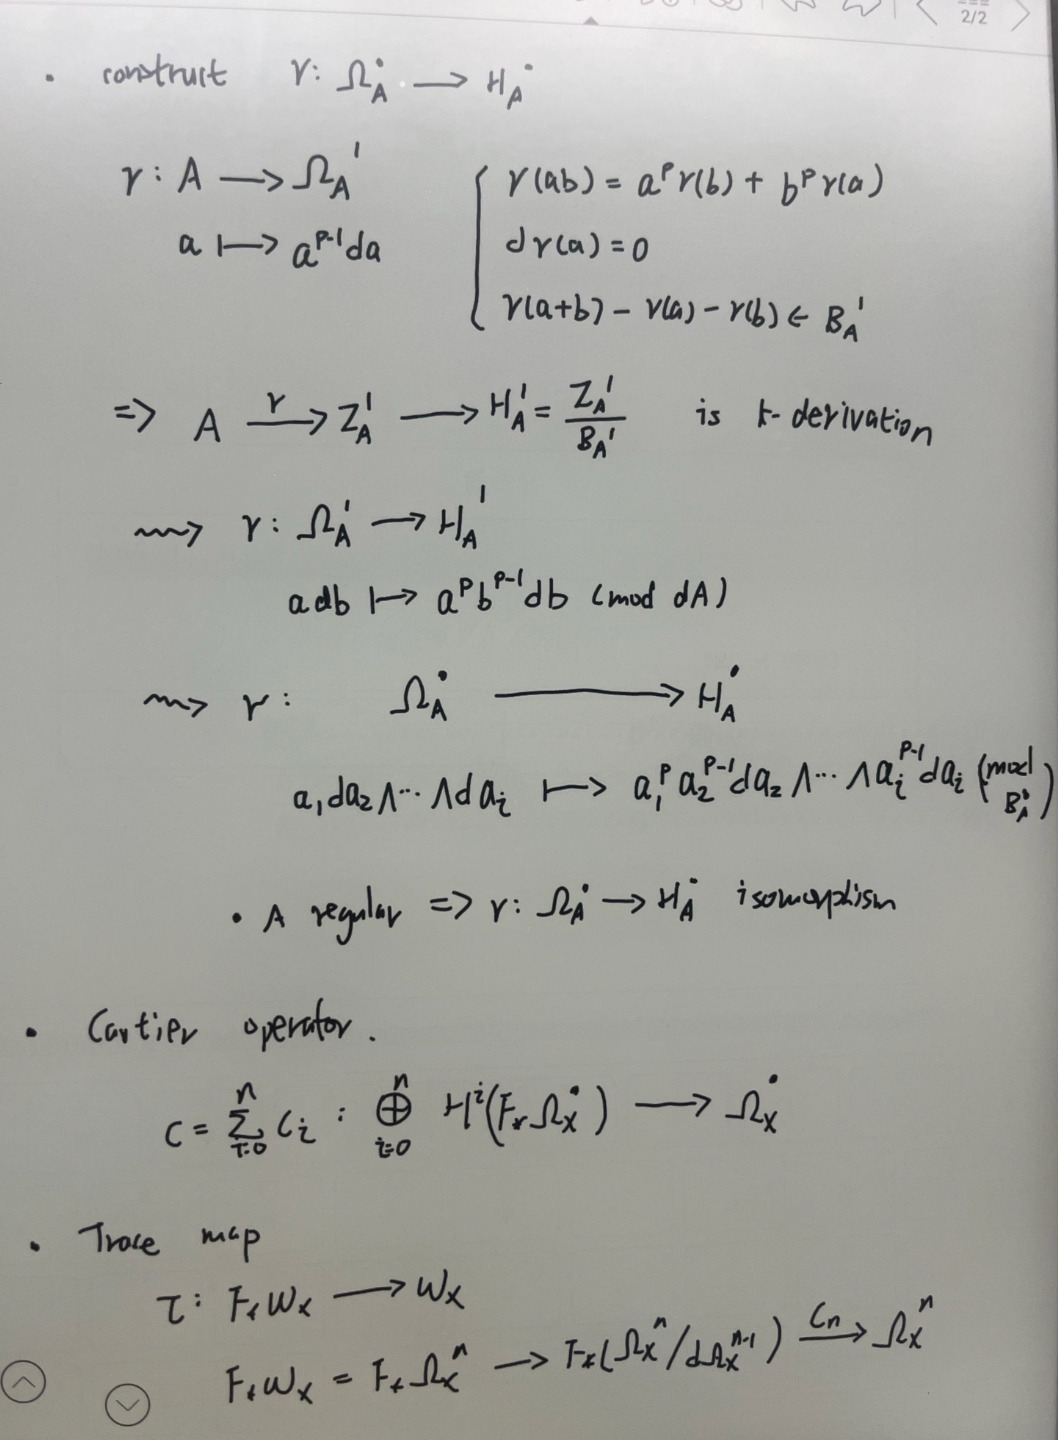 2/2
• construct γ: Ω_A^• → H_A^•
γ: A → Ω_A^1
a ↦ a^{p-1}da
{ γ(ab) = a^p γ(b) + b^p γ(a)
dγ(a) = 0
γ(a+b) - γ(a) - γ(b) ∈ B_A^1
⇒ A →^γ Z_A^1 → H_A^1 = Z_A^1 / B_A^1 is k-derivation
⇝ γ: Ω_A^1 → H_A^1
adb ↦ a^p b^{p-1}db (mod dA)
⇝ γ: Ω_A^• → H_A^•
a_1da_2∧⋯∧da_i ↦ a_1^p a_2^{p-1}da_2∧⋯∧a_i^{p-1}da_i (mod B_A^•)
• A regular ⇒ γ: Ω_A^• → H_A^• isomorphism
• Cartier operator.
C = ∑_{i=0}^n C_i : ⊕_{i=0}^n H^i(F_*Ω_X^•) → Ω_X^•
• Trace map
τ: F_*ω_X → ω_X
F_*ω_X = F_*Ω_X^n → F_*(Ω_X^n/dΩ_X^{n-1}) →^{C_n} Ω_X^n